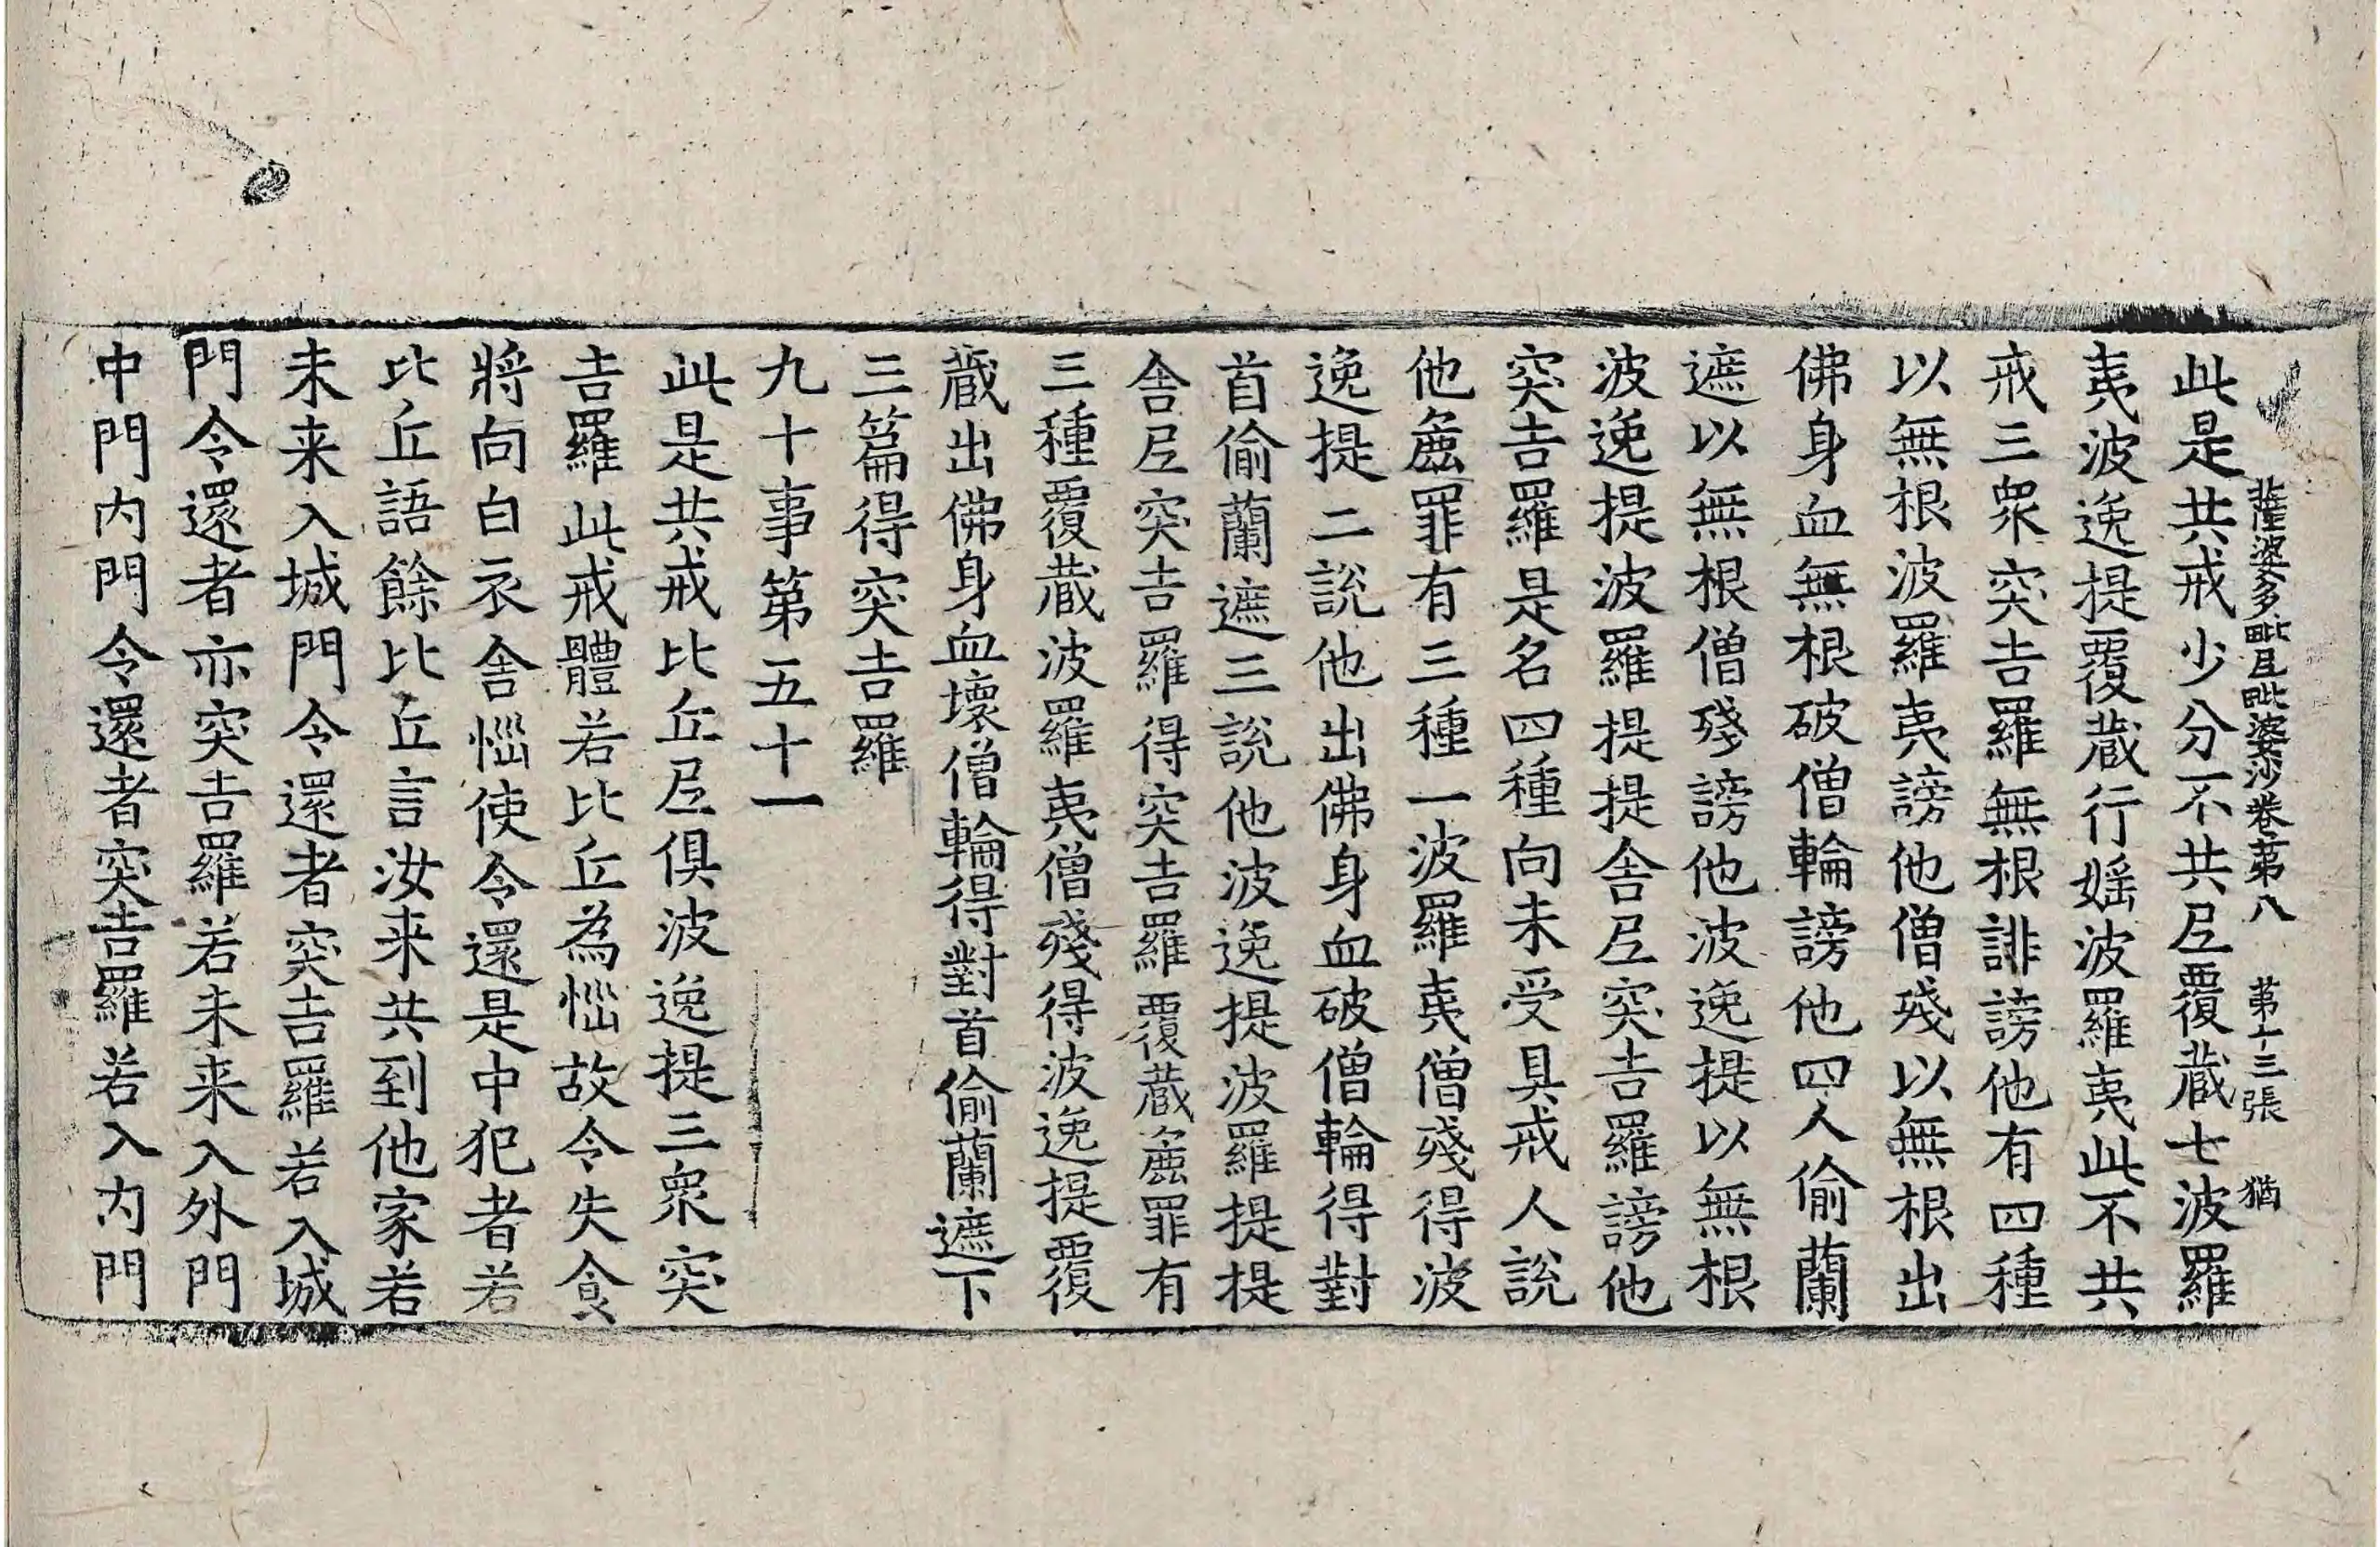 薩婆多毗尼毗婆沙卷第八 第十三張 猶
此是共戒少分不共尼覆藏七波羅
夷波逸提覆藏行婬波羅夷此不共
戒三衆突吉羅無根誹謗他有四種
以無根波羅夷謗他僧殘以無根出
佛身血無根破僧輪謗他四人偷蘭
遮以無根僧殘謗他波逸提以無根
波逸提波羅提提舍尼突吉羅謗他
突吉羅是名四種向未受具戒人說
他麁罪有三種一波羅夷僧殘得波
逸提二說他出佛身血破僧輪得對
首偷蘭遮三說他波逸提波羅提提
舍尼突吉羅得突吉羅覆藏麁罪有
三種覆藏波羅夷僧殘得波逸提覆
藏出佛身血壞僧輪得對首偷蘭遮下
三篇得突吉羅
九十事第五十一
此是共戒比丘尼俱波逸提三衆突
吉羅此戒體若比丘為惱故令失食
將向白衣舍惱使令還是中犯者若
比丘語餘比丘言汝来共到他家若
未来入城門令還者突吉羅若入城
門令還者亦突吉羅若未来入外門
中門内門令還者突吉羅若入内門